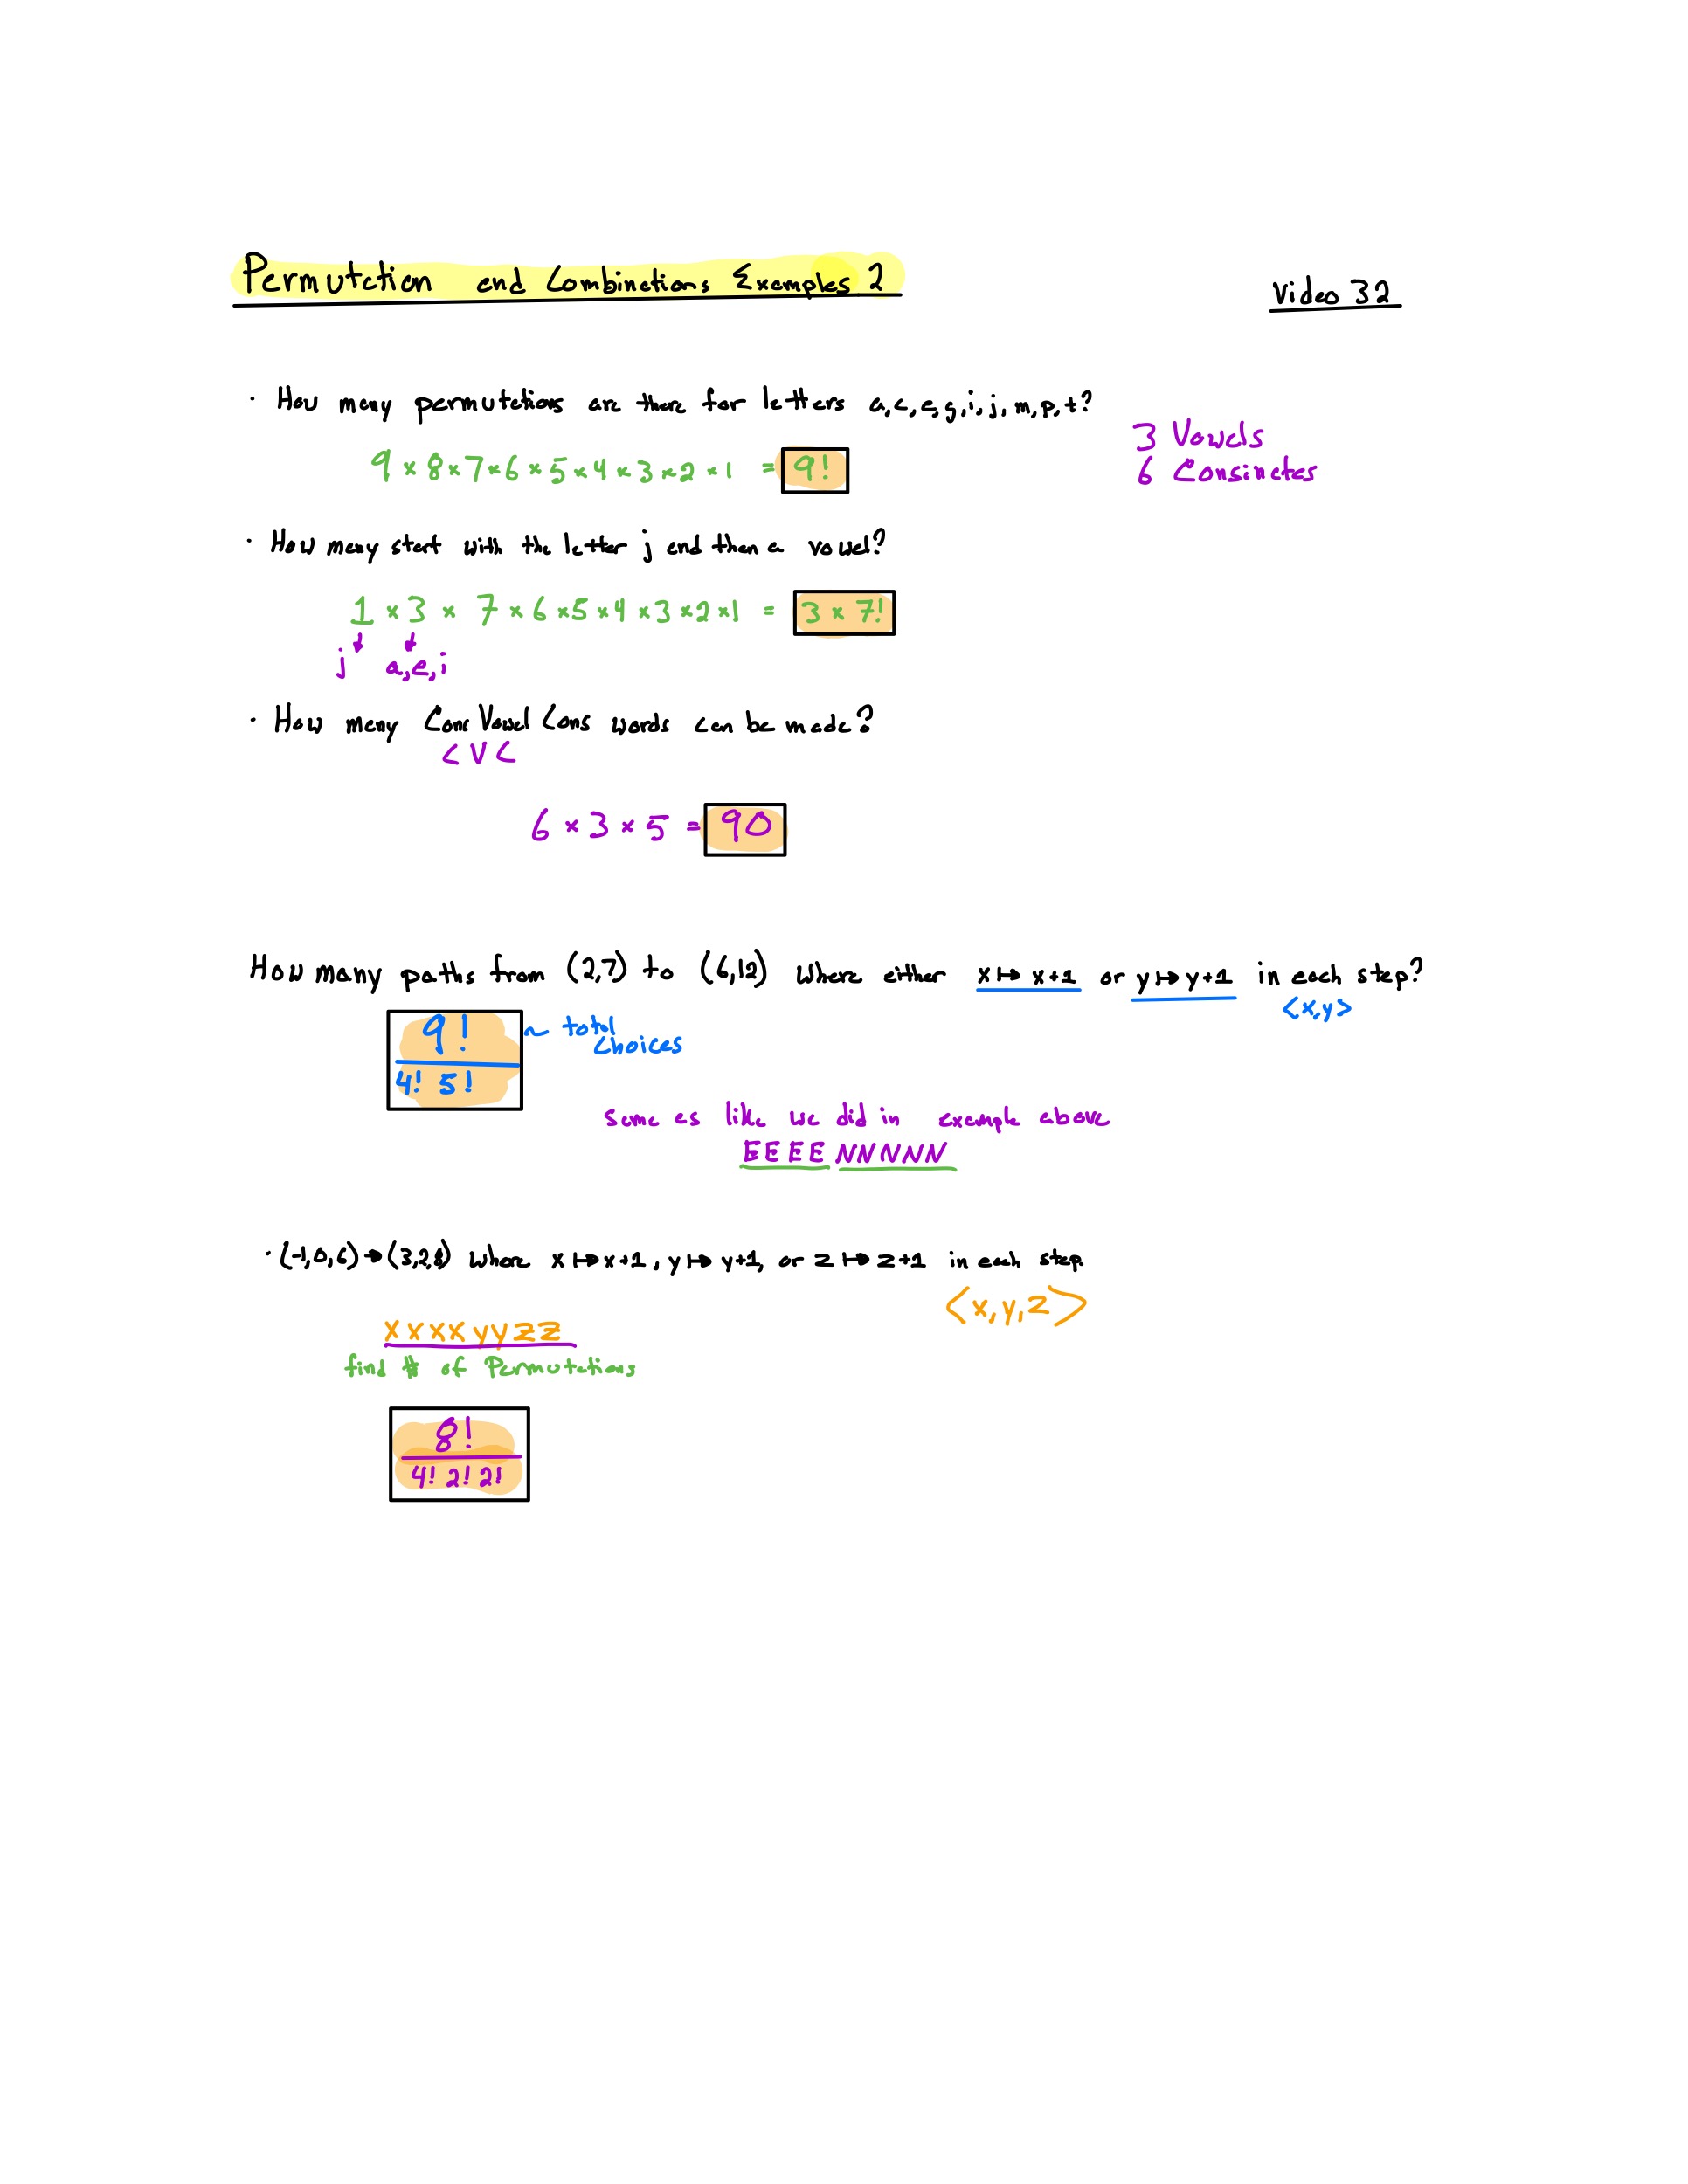 Permutation and Combinations Examples 2
Video 32
· How many permutations are there for letters a, c, e, g, i, j, m, p, t?
3 Vowels
6 Consinates
9 × 8 × 7 × 6 × 5 × 4 × 3 × 2 × 1 = 9!
· How many start with the letter j and then a vowel?
1 × 3 × 7 × 6 × 5 × 4 × 3 × 2 × 1 = 3 × 7!
j a, e, i
· How many Cons Vowel Cons words can be made?
C V C
6 × 3 × 5 = 90
How many paths from (2,7) to (6,12) where either x ↦ x+1 or y ↦ y+1 in each step?
<x,y>
9! ~ total choices
4! 5!
same as like we did in example above
E E E E N N N N N
· (-1,0,6) → (3,2,8) where x ↦ x+1, y ↦ y+1, or z ↦ z+1 in each step
<x,y,z>
x x x x y y z z
find # of Permutations
8!
4! 2! 2!